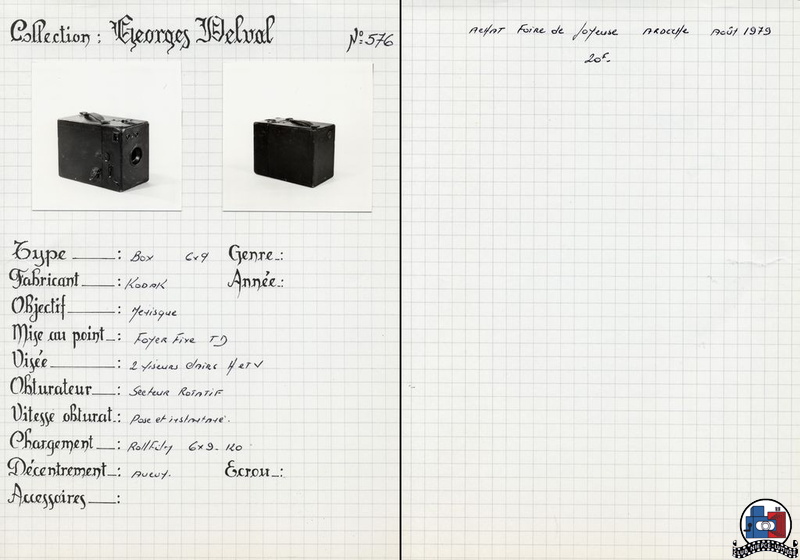 Collection : Georges Delval
N° 576
Type : Box 6x9 Genre :
Fabricant : Kodak Année :
Objectif : Menisque
Mise au point : Foyer Fixe
Visée : 2 viseurs clairs H et V
Obturateur : Secteur Rotatif
Vitesse obturat. : Pose et instantané.
Chargement : Rollfilm 6x9 - 120
Décentrement : Aucun. Ecrou :
Accessoires :
Achat Foire de Joyeuse Ardeche Août 1979
20F.